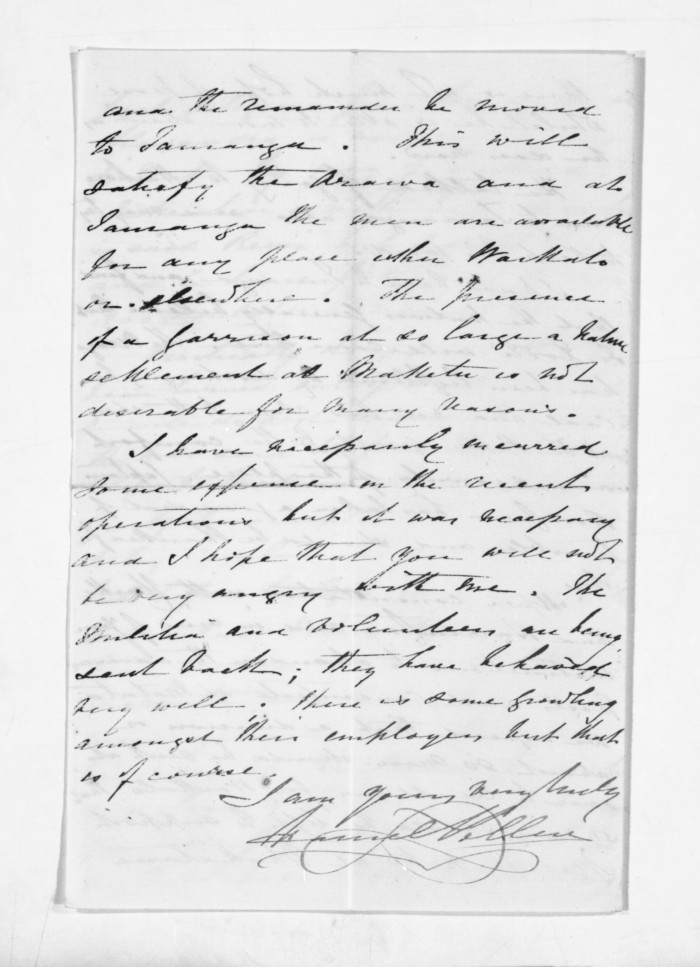 and the remainder be moved
to Tauranga. This will
satisfy the Arawa and at
Tauranga the men are available
for any place either Waikato
or elsewhere. The presence
of a Garrison at so large a Native
settlement as Maketu is not
desirable for many reasons.
I have necessarily incurred
some expense in the recent
operations but it was necessary
and I hope that you will not
be very angry with me. The
Militia and Volunteers are being
sent back; they have behaved
very well. There is some growling
amongst their employers but that
is of course.
I am yours very truly
Daniel Pollen